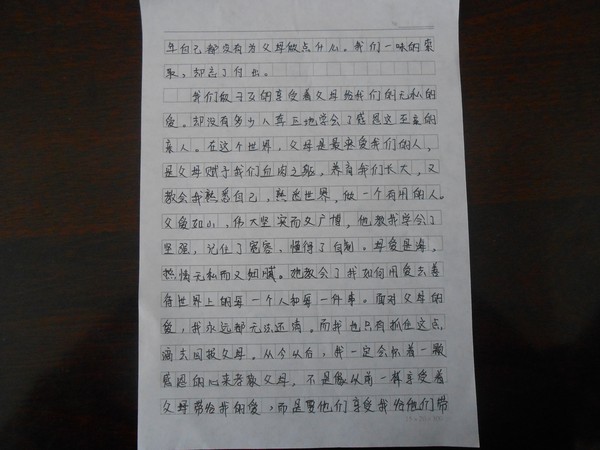 年自己都没有为父母做点什么。我们一味的索
取，却忘了付出。
我们敬习及的享受着父母给我们的无私的
爱。却没有多少人真正地学会了感恩这至亲的
亲人。在这个世界，父母是最爱我们的人，
是父母赋予我们血肉之躯，养育我们长大，又
教会我熟悉自己，熟悉世界，做一个有用的人。
父爱如山，伟大坚实而又广博，他教我学会了
坚强，记住了宽容，懂得了自制。母爱是海，
热情无私而又细腻。她教会了我如何用爱去善
待世界上的每一个人和每一件事。面对父母的
爱，我永远都无法还清。而我也只有抓住这点
滴去回报父母。从今以后，我一定会怀着一颗
感恩的心来孝敬父母，不是像从前一样享受着
父母带给我的爱，而是要他们享受我给他们带